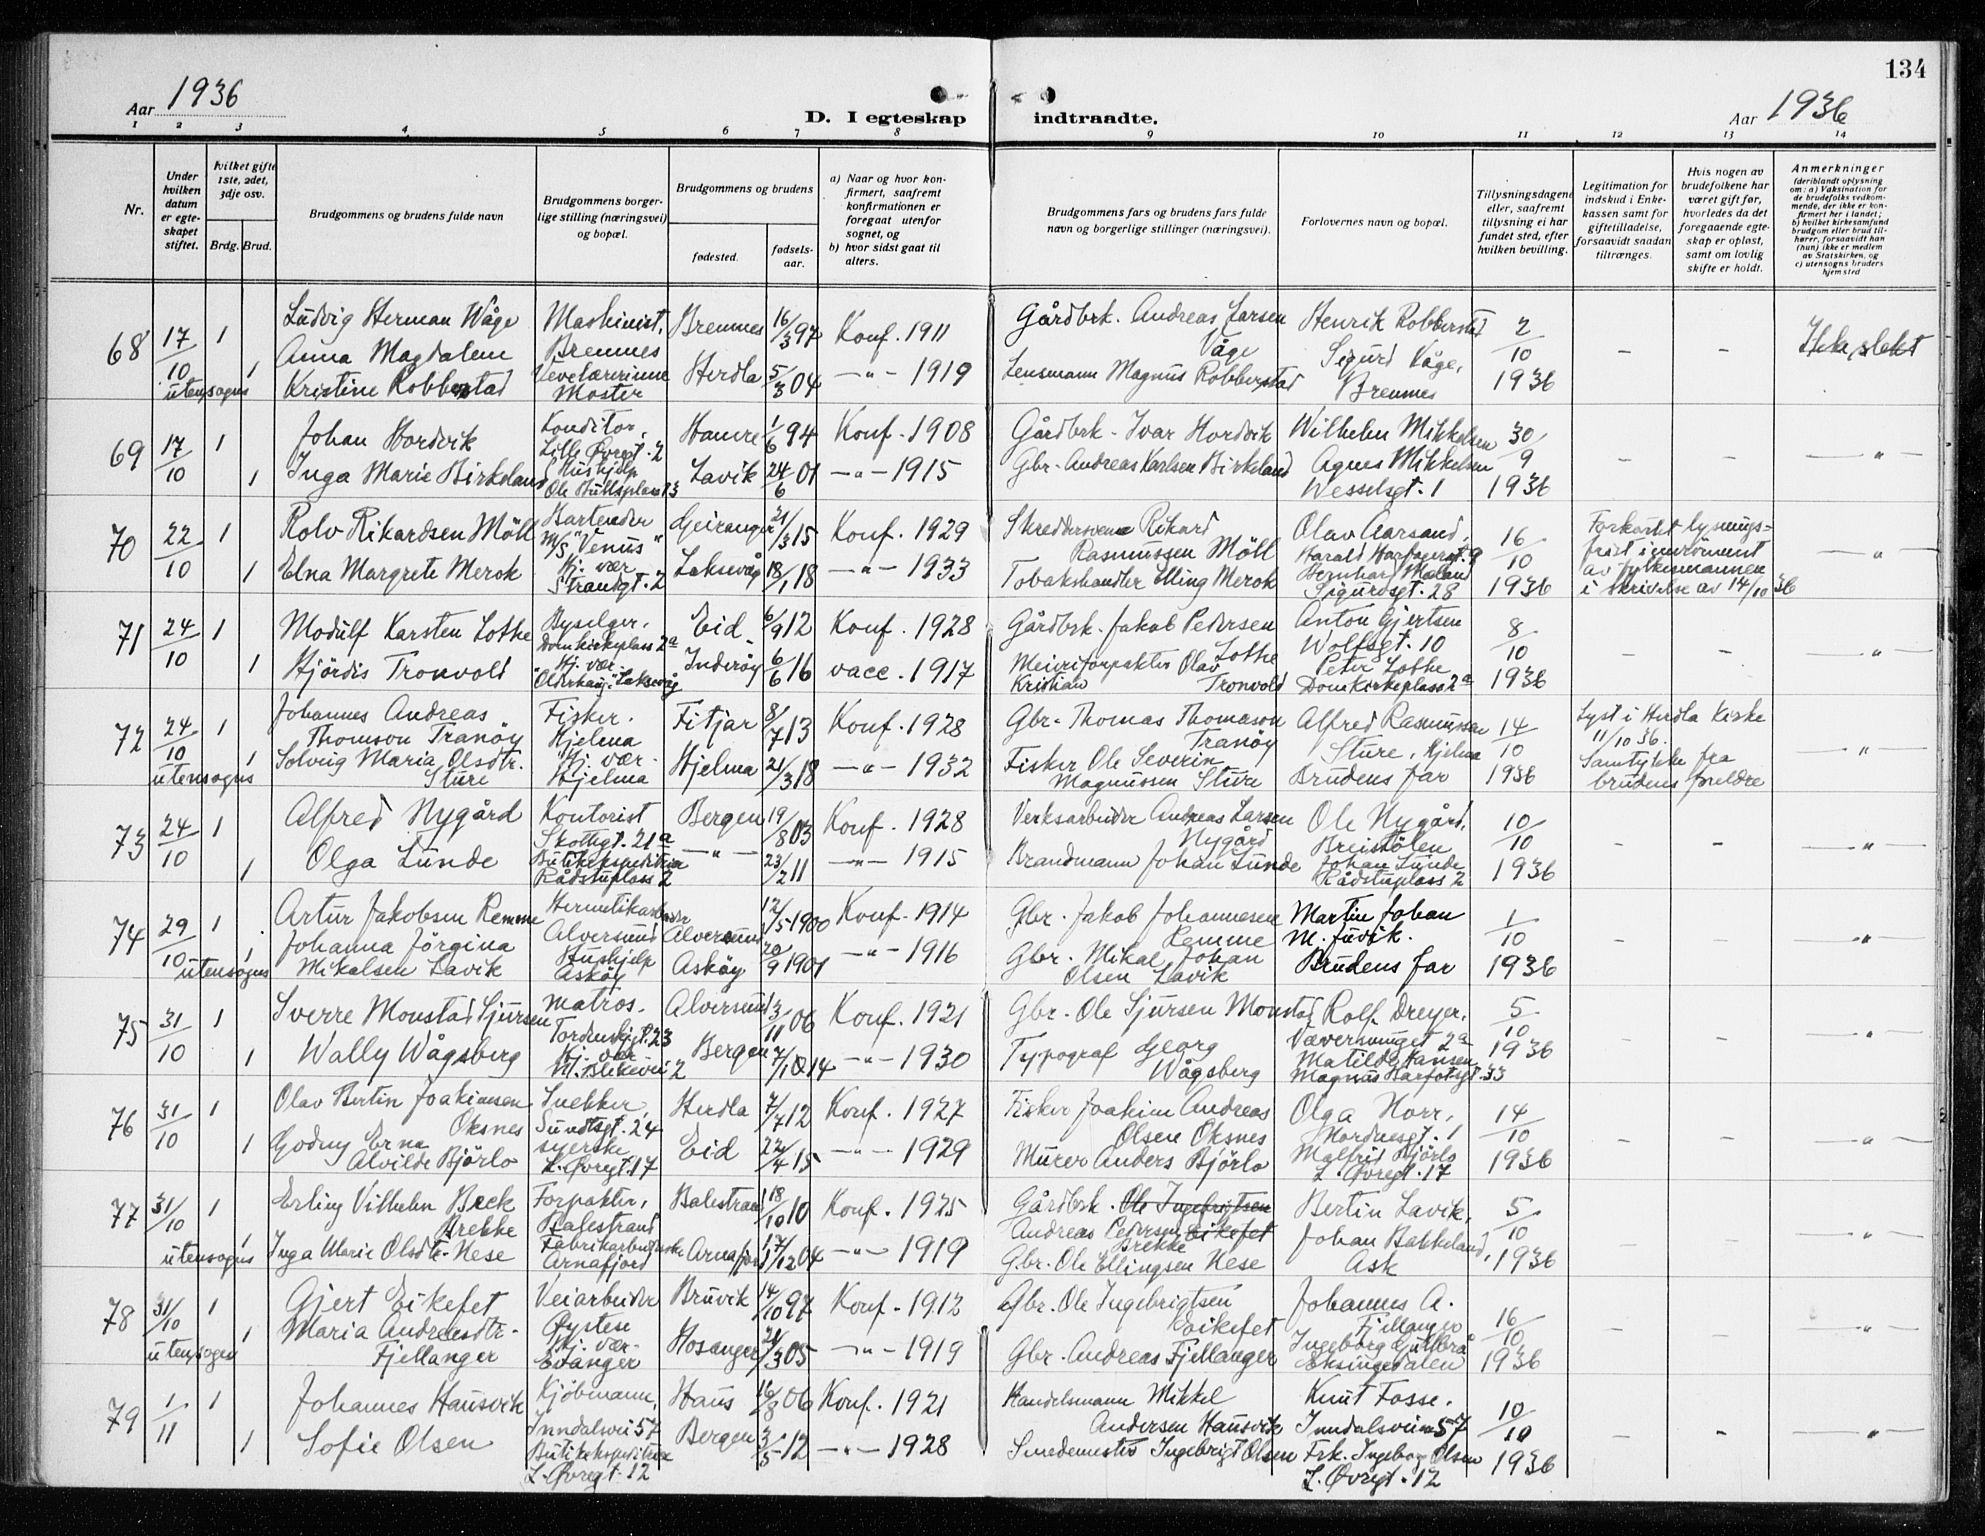 134
Aar 1936
D. I egteskap indtraadte.
Aar 1936
1 2 3 4 5 6 7 8 9 10 11 12 13 14
Nr.
Under hvilken datum er egteskapet stiftet.
hvilket gifte 1ste, 2det, 3dje osv.
Brdg. Brud.
Brudgommens og brudens fulde navn
Brudgommens borgerlige stilling (næringsvei) og bopæl.
Brudgommens og brudens
fødested.
fødselsaar.
a) Naar og hvor konfirmert, saafremt konfirmationen er foregaat utenfor sognet, og
b) hvor sidst gaat til alters.
Brudgommens fars og brudens fars fulde navn og borgerlige stillinger (næringsvei).
Forlovernes navn og bopæl.
Tillysningsdagene eller, saafremt tillysning ei har fundet sted, efter hvilken bevilling.
Legitimation for indskud i Enkekassen samt for giftetilladelse, forsaavidt saadan tiltrænges.
Hvis nogen av brudefolkene har været gift før, hvorledes da det foregaaende egteskap er opløst, samt om lovlig skifte er holdt.
Anmerkninger
(deriblandt oplysning om: a) Vaksination for de brudefolks vedkommende, der ikke er konfirmert her i landet; b) hvilket kirkesamfund brudgom eller brud tilhører, forsaavidt han (hun) ikke er medlem av Statskirken, og c) utensogns bruders hjemsted
68 17/10 utensogns 1 Ludvig Herman Våge Maskinist, Bremnes Bremnes 16/3 97 Konf. 1911 Gårdbrk. Andreas Larsen Våge Henrik Robberstad 2/10 1936 - - Ikke slekt
1 Anna Magdalene Kristine Robberstad Vevelærerinne Moster Herdla 5/3 04 -"- 1919 Lensmann Magnus Robberstad Sigurd Våge, Bremnes
69 17/10 1 Johan Hordvik Konditor, Lille Øvregt. 2 Hamre 1/6 94 Konf. 1908 Gårdbrk. Ivar Hordvik Wilhelm Mikkelsen 30/9 1936 - - -"-
1 Inga Marie Birkeland Hushjelp Ole Bullsplass 13 Lavik 24/6 01 -"- 1915 Gbr. Andreas Karlsen Birkeland Agnes Mikkelsen Wesselsgt. 1
70 22/10 1 Rolv Rikardsen Möll Bartender M/S "Venus" Geiranger 21/3 15 Konf. 1929 Skreddersvenn Rikard Rasmussen Möll Olav Aarsand, Harald Hårfagersgt. 9 16/10 1936 Forkortet lysningsfrist innrömmet av fylkesmannen i skrivelse av 14/10 36 -"-
1 Elna Margrete Merok Hj. vær. Strandgt. 2 Laksevåg 18/1 18 -"- 1933 Tobakshandler Elling Merok Bernhard Mæland Sigurdsgt. 28
71 24/10 1 Modulf Karsten Lothe Byselger, Domkirkeplass 2a Eid 6/9 12 Konf. 1928 Gårdbrk. Jakob Pedersen Lothe Anton Gjertsen Wolfsgt. 10 8/10 1936 - - -"-
1 Hjördis Tronvold Hj. vær. Laksevåg Inderøy 6/6 16 vacc. 1917 Meieriforpakter Olav Kristian Tronvold Peter Lothe Domkirkeplass 2a
72 24/10 utensogns 1 Johannes Andreas Thomson Tranöy Fisker. Hjelma Fitjar 8/7 13 Konf. 1928 Gbr. Thomas Thomason Tranöy Alfred Rasmussen Sture, Hjelma 14/10 1936 Lyst i Herdla Kirke 11/10 36. Samtykke fra brudens foreldre -"-
1 Solveig Maria Olsdtr. Sture Hj. vær. Hjelma Hjelma 21/3 18 -"- 1932 Fisker Ole Severin Magnussen Sture Brudens far
73 24/10 1 Alfred Nygård Kontorist Skottegt. 21a Bergen 19/8 03 Konf. 1928 Verksarbeider Andreas Larsen Nygård Ole Nygård, Breistölen 10/10 1936 - - -"-
1 Olga Lunde Butikekspeditrise Rådstuplass 2 -"- 23/2 11 -"- 1915 Brandmann Johan Lunde Johan Lunde Rådstuplass 2
74 29/10 utensogns 1 Artur Jakobsen Remme Hermetikarbeider Alversund Alversund 12/5 1900 Konf. 1914 Gbr. Jakob Johannesen Remme Martin Johan M. Juvik. 1/10 1936 - - -"-
1 Johanna Jörgina Mikalsen Lavik Hushjelp Asköy Asköy 20/9 1901 -"- 1916 Gbr. Mikal Johan Olsen Lavik Brudens far
75 31/10 1 Sverre Monstad Sjursen Matros. Tordenskj.gt. 23 Alversund 3/11 06 Konf. 1921 Gbr. Ole Sjursen Monstad Rolf Dreyer, Væversmuget 2a 5/10 1936 - - -"-
1 Wally Wågsberg Hj. vær. M. Blekevei 2 Bergen 7/10 14 -"- 1930 Typograf Georg Wågsberg Matilde Hansen Magnus Barfotsgt. 33
76 31/10 1 Olav Bertin Joakimsen Oksnes Snekker, Sundtsgt. 24 Herdla 7/7 12 Konf. 1927 Fisker Joakim Andreas Olsen Oksnes Olga Horr, Nordnesgt. 1 14/10 1936 - - -"-
1 Godny Erna Alvilde Björlo syerske L. Øvregt. 17 Eid 22/4 15 -"- 1929 Murer Anders Björlo Malfrid Björlo L. Øvregt. 17
77 31/10 utensogns 1 Erling Vilhelm Beck Brekke Forpakter, Balestrand Balestrand 18/10 10 Konf. 1925 Gårdbrk. Ole Ingebrigtsen Eikefet Andreas Pedersen Brekke Bertin Lavik, 5/10 1936 - - -"-
1 Inga Marie Olsdtr. Nese Fabrikarbeiderske Arnafjord Arnafjord 17/12 04 -"- 1919 Gbr. Ole Ellingsen Nese Johan Bakkeland, Ask
78 31/10 utensogns 1 Gjert Eikefet Veiarbeider Øystese Bruvik 14/10 97 Konf. 1912 Gbr. Ole Ingebrigtsen Eikefet Johannes A. Fjellanger 16/10 1936 - - -"-
1 Maria Andreasdtr. Fjellanger Hj. vær. Evanger Hosanger 21/3 05 -"- 1919 Gbr. Andreas Fjellanger Ingeborg Gullbrå Eksingedalen
79 1/11 1 Johannes Hausvik Kjöbmann, Inndalsvei 57 Haus 16/8 06 Konf. 1921 Handelsmann Mikkel Andersen Hausvik Knut Fosse. Inndalsveien 57 10/10 1936 - - -"-
1 Sofie Olsen Butikekspeditrise L. Øvregt. 12 Bergen 3/5 12 -"- 1928 Smedemester Ingebrigt Olsen Frk. Ingeborg Olsen L. Øvregt. 12